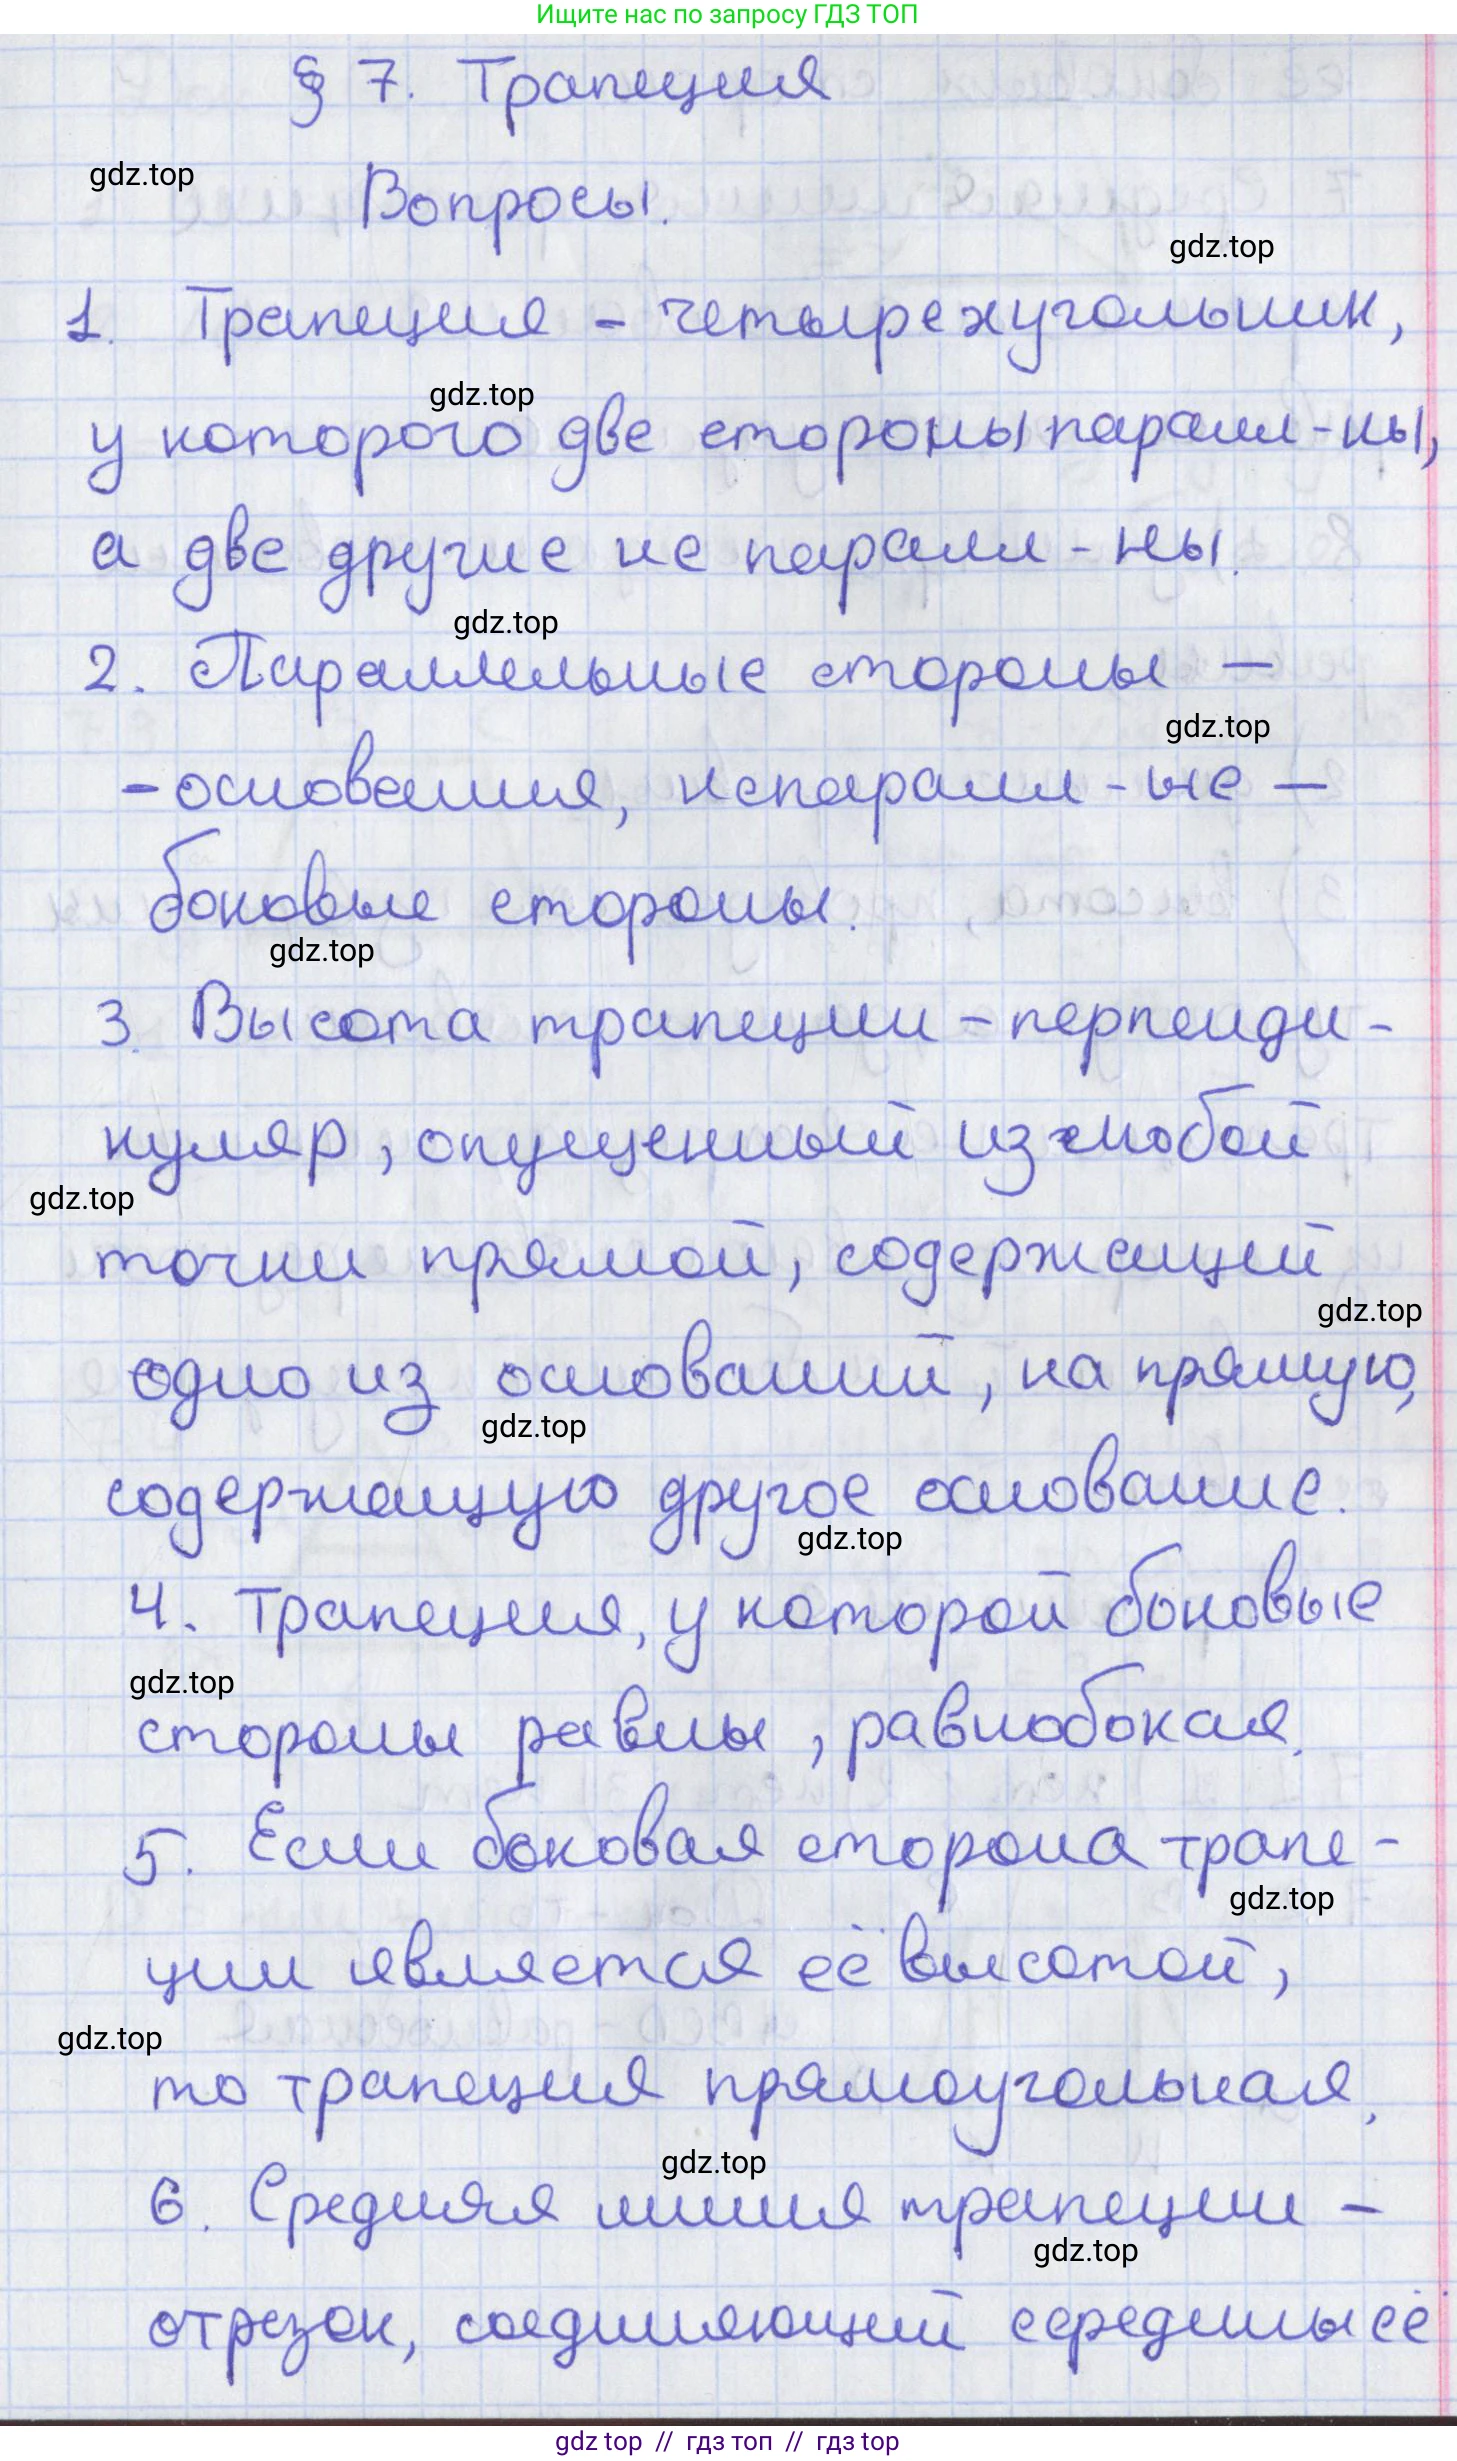 Ищите нас по запросу ГДЗ ТОП
§ 7. Трапеция
gdz.top
Вопросы.
gdz.top
1. Трапеция - четырехугольник,
gdz.top
у которого две стороны паралл-ны,
а две другие не паралл-ны.
gdz.top
2. Параллельные стороны —
gdz.top
- основания, непаралл-ые —
боковые стороны.
gdz.top
3. Высота трапеции - перпенди-
куляр, опущенный из любой
gdz.top
точки прямой, содержащей
gdz.top
одно из оснований, на прямую,
gdz.top
содержащую другое основание.
gdz.top
4. Трапеция, у которой боковые
gdz.top
стороны равны, равнобокая.
5. Если боковая сторона трапе-
gdz.top
ции является её высотой,
gdz.top
то трапеция прямоугольная.
gdz.top
6. Средняя линия трапеции -
gdz.top
отрезок, соединяющий середины её
gdz top // гдз топ // гдз top